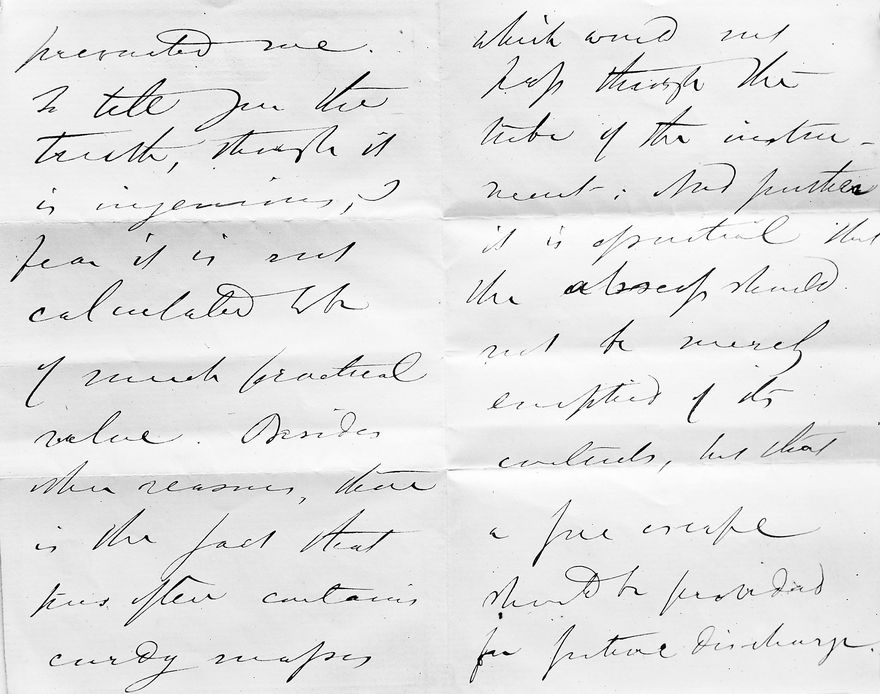 prevented me.
To tell you the
truth, though it
is ingenious, I
fear it is not
calculated to be
of much practical
value. Besides
other reasons, there
is the fact that
pus often contains
curdy masses
which would not
pass through the
tube of the instru-
ment; And further
it is essential that
the abscess should
not be merely
emptied of its
contents, but that
a free escape
should be provided
for future discharge.